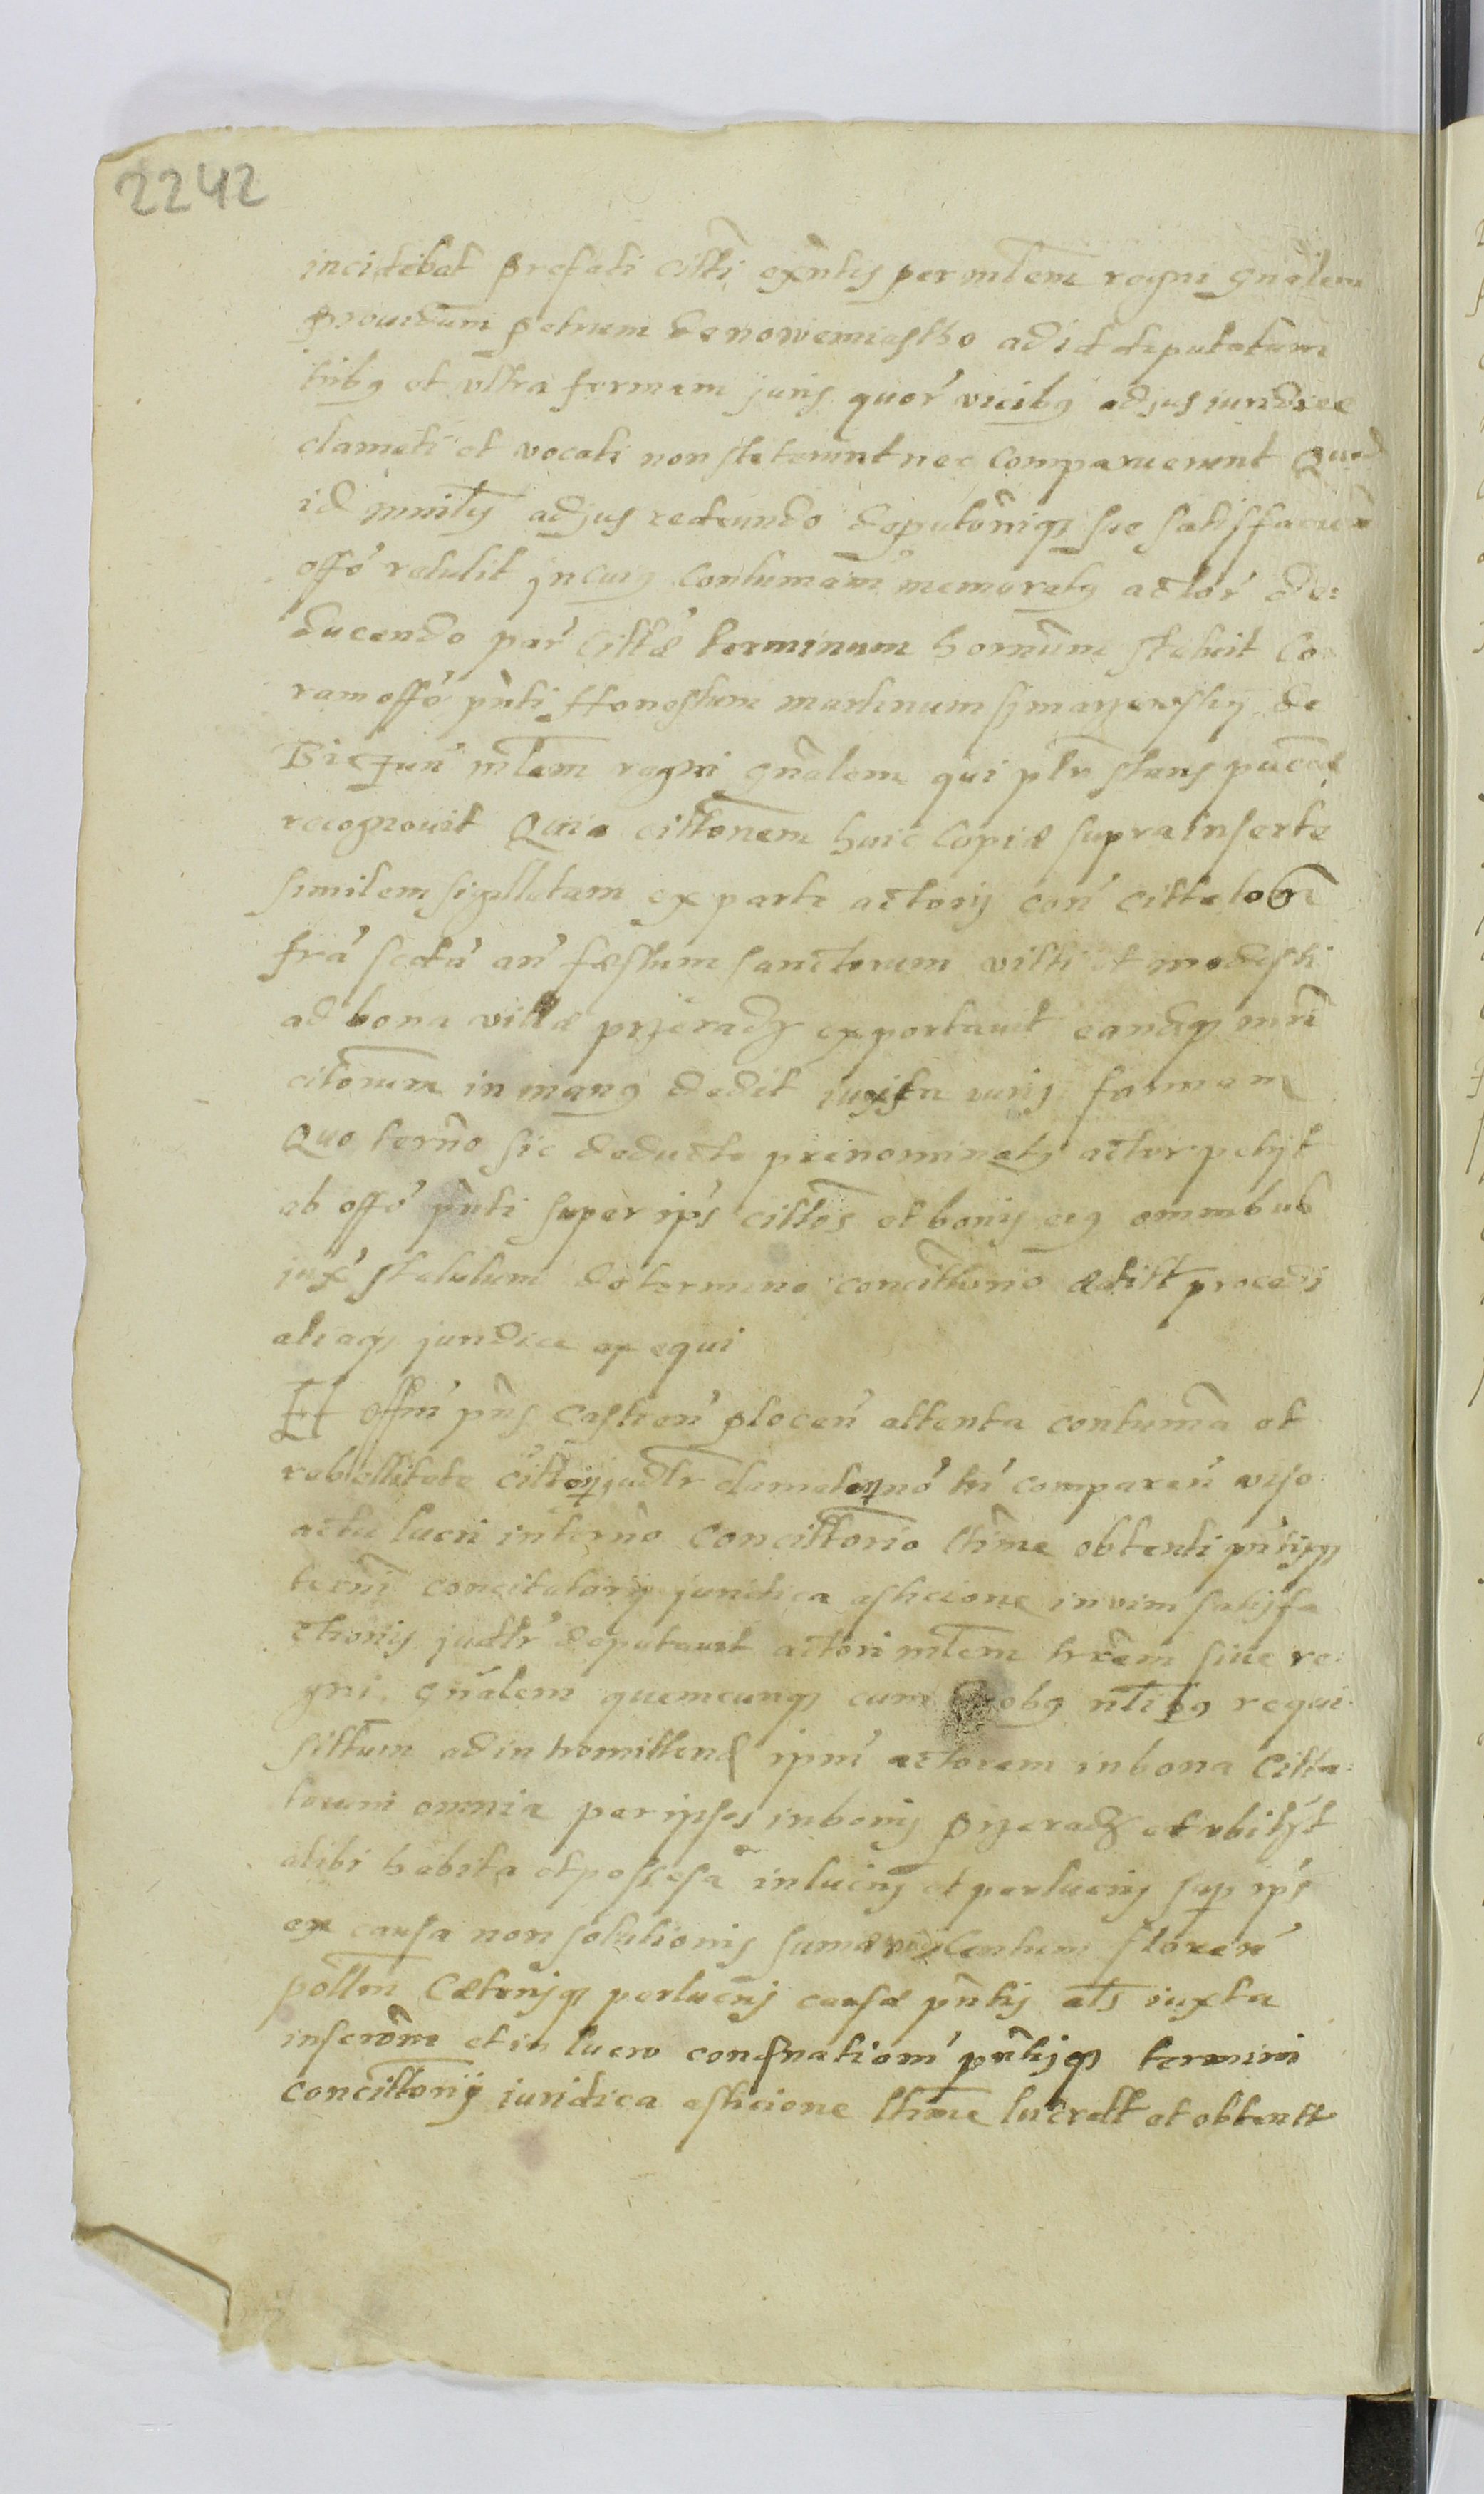 2242
incidebat prefati citti exñtis per mlem regni gnalem
providum petrum de nowemiastho ad id deputatum
tribq et ultra formam juris quor vicibq adjus juridice
clamati et vocati non steterunt nec comparuerunt Quod
id mnilis adjus redeundo deputoniq sue satisfaciẽn
offo retulit in cuiq contumam memoratq actor de:
ducendo par citta terminum hornum statuit Co
ram offo pñti Honestum martinum szmanzewsky de
mlem regni gnalem qui plr stans pucae
recognovit Quia cittonem huic Copiæ supra inserte
similem sigillatam ex parte actoris con cittatom
fra sedu an festum sanctorum vitti et modesti
ad bona villæ pyeradz exportavit eandq mñi
citorum in manq dedit juxta juris formam
Quo termo sic deducto prenominatq actor petijt
ab offo pñti super ips cittos et bonis eiq omnibus
jux statutum de termino concittorio æditt procedi
aliaq juridice exequi
Et offm pñs Castren plocen attenta contuma et
rebellitate cittor judlr clamator no tn comparen viso
actu lucri in termo concittorio lhme obtenti pñtisq
termi concitatorij juridica asticione in vim satisfa
ctionis judlr deputavit actori mlem hrem sive re:
gni gnalem quemcunq cum duobq nlibq requi
sittum ad intromittend ipm actorem in bona Citta:
torum omnia per ipsos in bonis pyeradz et ubilyt
alibi habita et possessa in lucris et perlucris sup ips
ex causa non solutionis sumæ Centum floren
pollem Cæterisq perlucris causæ pñtis als iuxta
inscrom et in lucro condnationi pñtisq termini
concittorij iuridica asticione lhme lucratt et obtentt